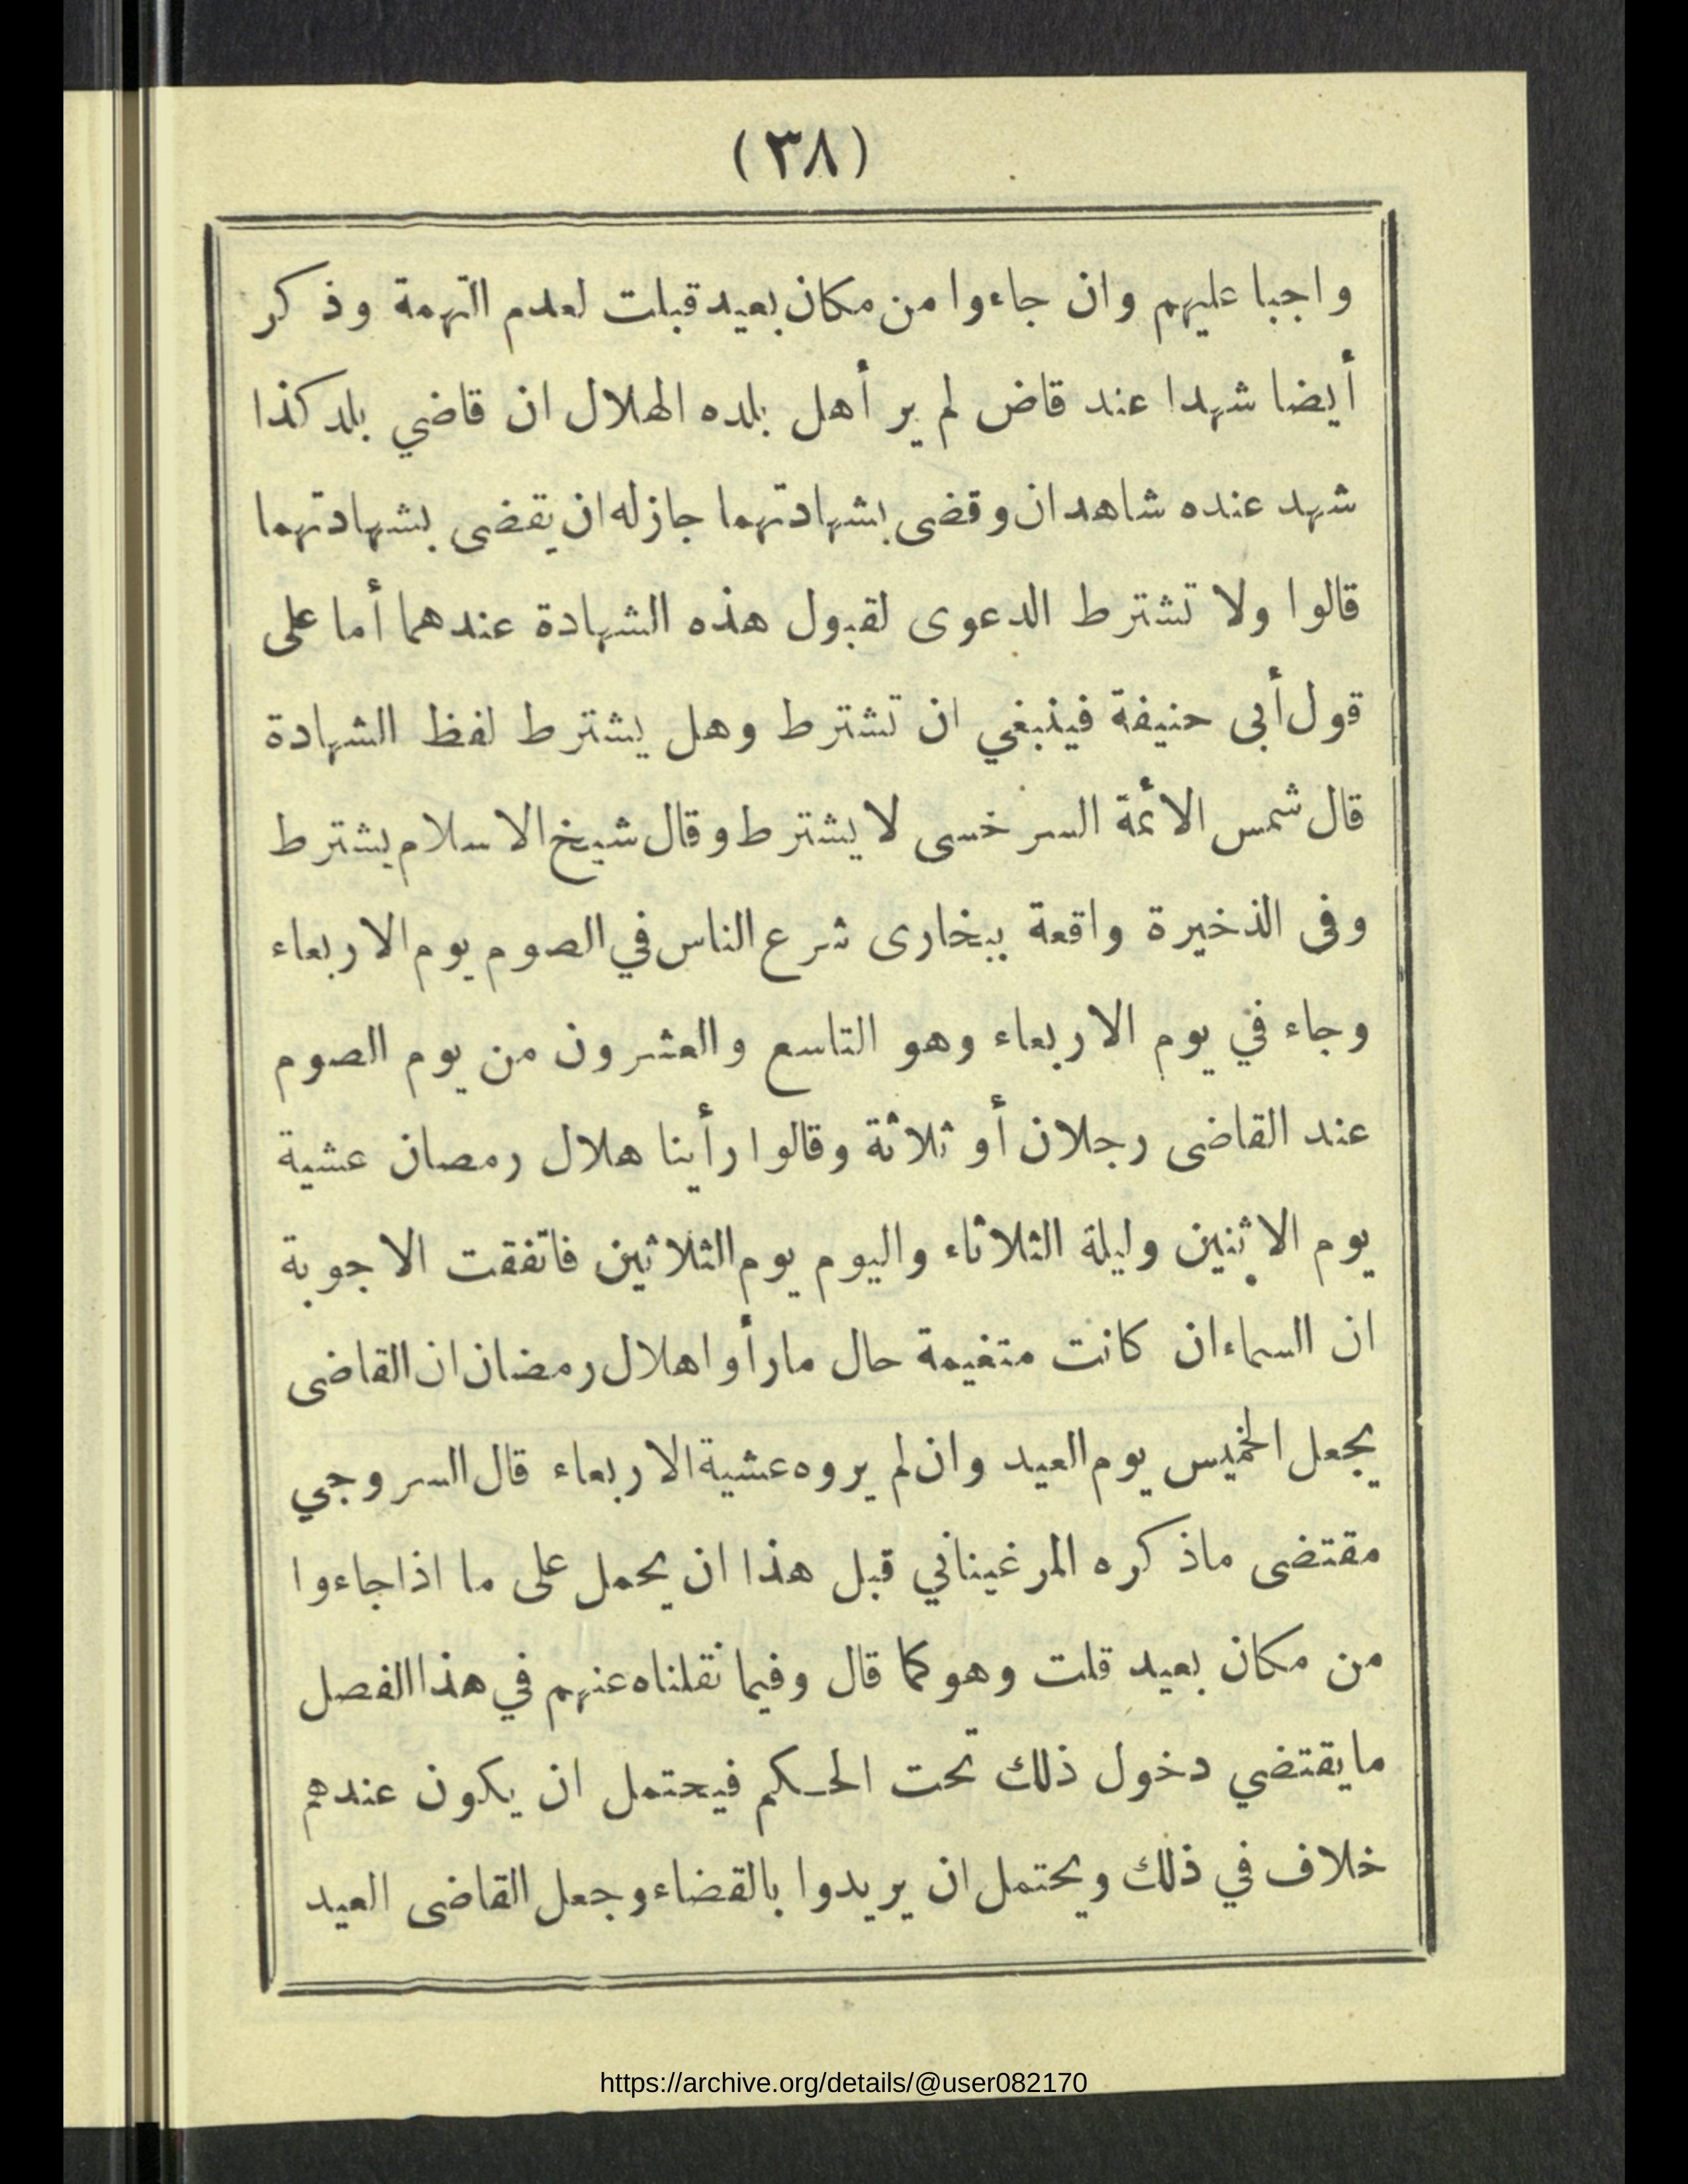 (٣٨)
واجبا عليهم وان جاءوا من مكان بعيد قبلت لعدم التهمة وذكر
أيضا شهدا عند قاض لم ير أهل بلده الهلال ان قاضي بلد كذا
شهد عنده شاهدان وقضى بشهادتهما جاز له ان يقضى بشهادتهما
قالوا ولا تشترط الدعوى لقبول هذه الشهادة عندهما أما على
قول أبى حنيفة فينبغي ان تشترط وهل يشترط لفظ الشهادة
قال شمس الائمة السرخسى لا يشترط وقال شيخ الاسلام يشترط
وفى الذخيرة واقعة ببخارى شرع الناس في الصوم يوم الاربعاء
وجاء في يوم الاربعاء وهو التاسع والعشرون من يوم الصوم
عند القاضى رجلان أو ثلاثة وقالوا رأينا هلال رمصان عشية
يوم الاثنين وليلة الثلاثاء واليوم يوم الثلاثين فاتفقت الاجوبة
ان السماء ان كانت متغيمة حال مارأوا هلال رمضان ان القاضى
يجعل الخميس يوم العيد وان لم يروه عشية الاربعاء قال السروجي
مقتضى ماذكره المرغيناني قبل هذا ان يحمل على ما اذا جاءوا
من مكان بعيد قلت وهو كما قال وفيما نقلناه عنهم في هذا الفصل
مايقتضي دخول ذلك تحت الحكم فيحتمل ان يكون عندهم
خلاف في ذلك ويحتمل ان يريدوا بالقضاء وجعل القاضى العيد
https://archive.org/details/@user082170